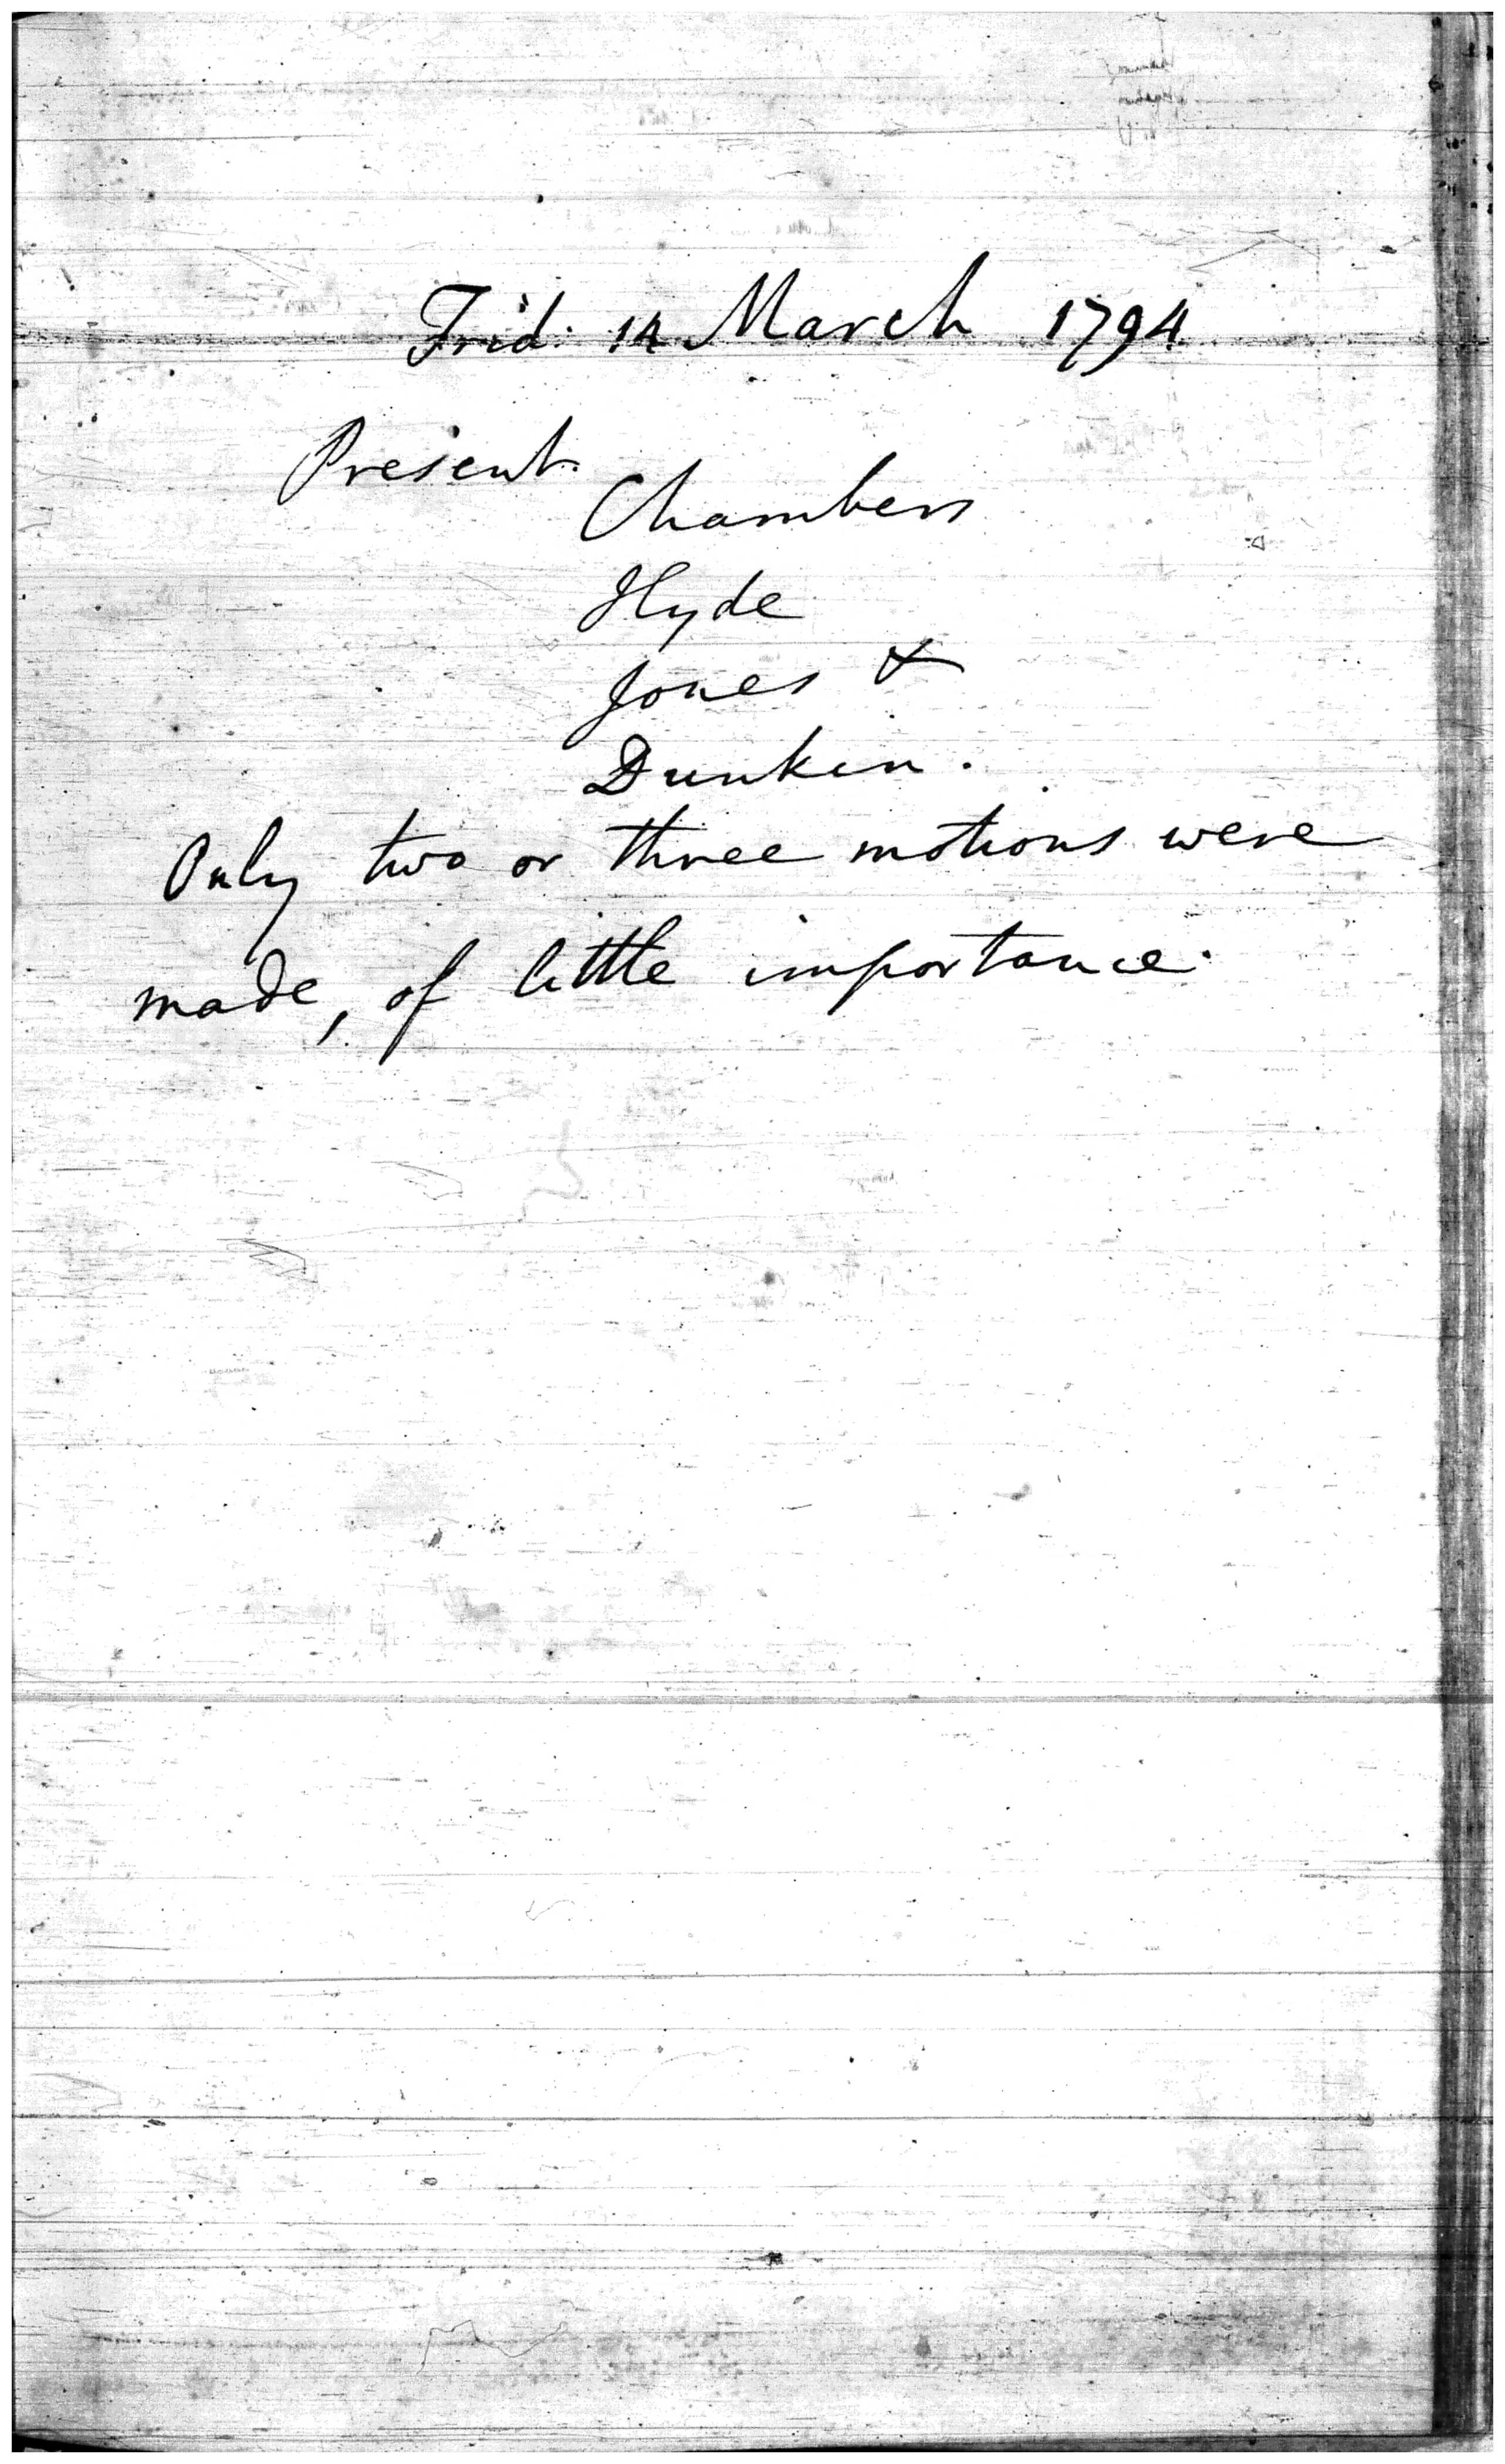 Frid. 14 March 1794
Present.
Chambers
Hyde
Jones &
Dunkin.
Only two or three motions were
made, of little importance.